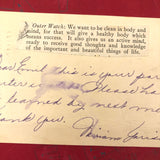 Outer Watch: We want to be clean in body and
mind, for that will give a healthy body which
means success. It also gives us an active mind,
ready to receive good thoughts and knowledge
of the important and beautiful things of life.
this is your pa
Please ha
learned by next
Thank you.
Miriam